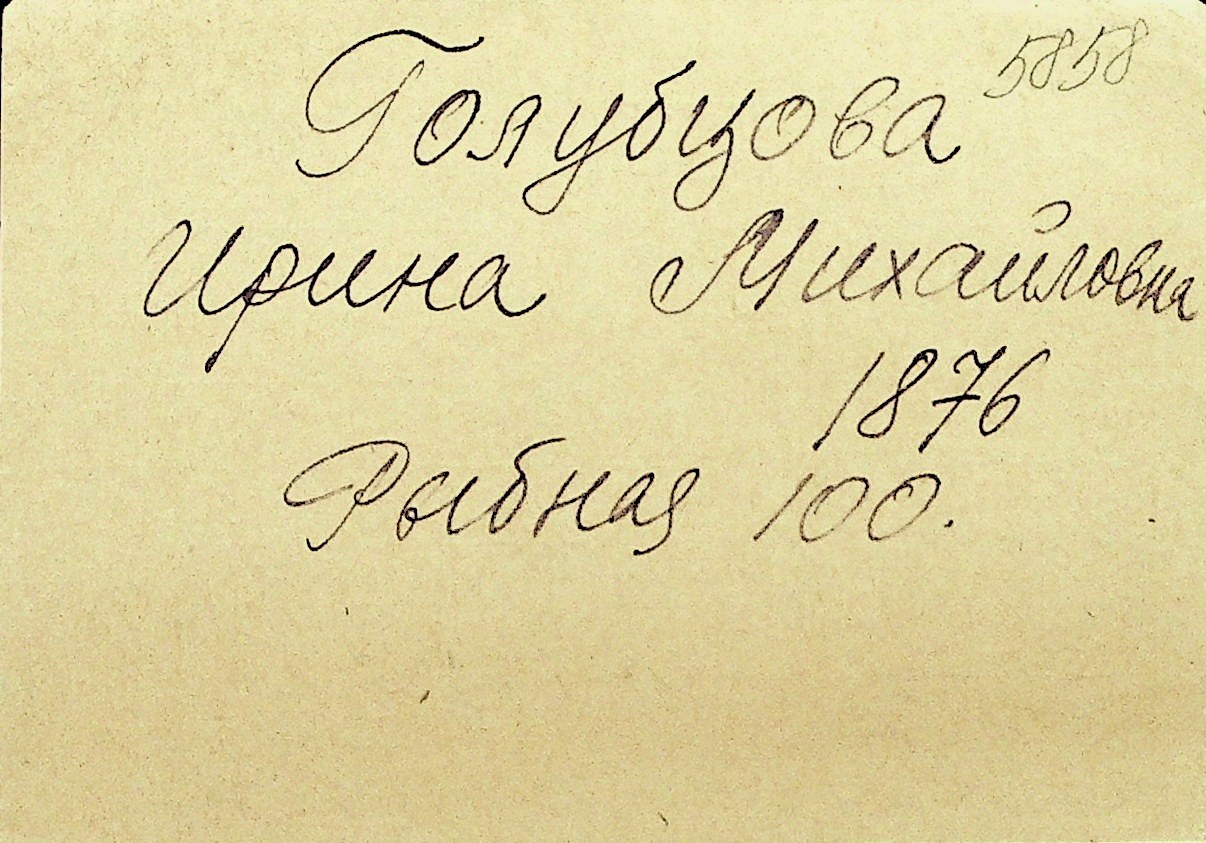 5858
Голубцова
Ирина Михайловна
1876
Рыбная 100.